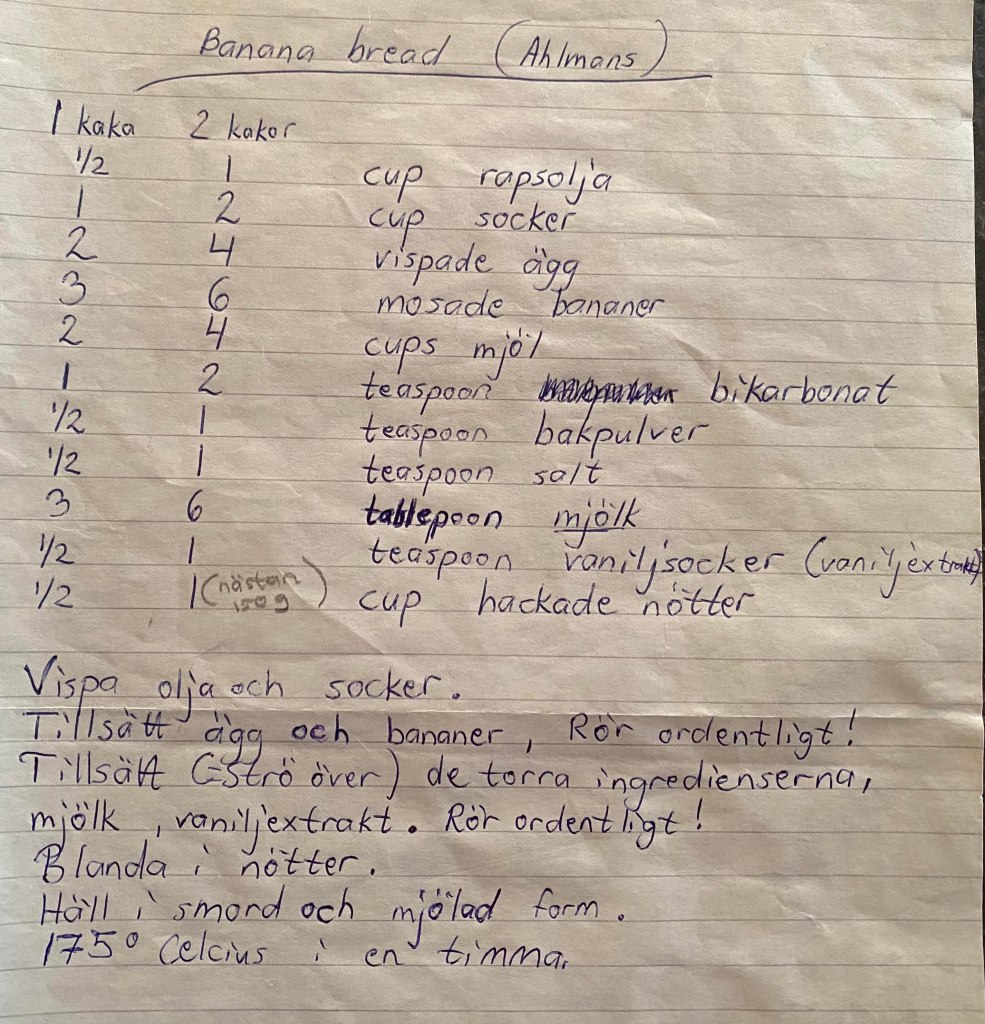 Banana bread (Ahlmans)
1 kaka 2 kakor
1/2 1 cup rapsolja
1 2 cup socker
2 4 vispade ägg
3 6 mosade bananer
2 4 cups mjöl
1 2 teaspoon bikarbonat
1/2 1 teaspoon bakpulver
1/2 1 teaspoon salt
3 6 tablepoon mjölk
1/2 1 teaspoon vaniljsocker (vaniljextrakt)
1/2 1 (nästan 150 g) cup hackade nötter
Vispa olja och socker.
Tillsätt ägg och bananer, Rör ordentligt!
Tillsätt (=Strö över) de torra ingredienserna,
mjölk, vaniljextrakt. Rör ordentligt!
Blanda i nötter.
Häll i smord och mjölad form.
175° Celcius i en timma.